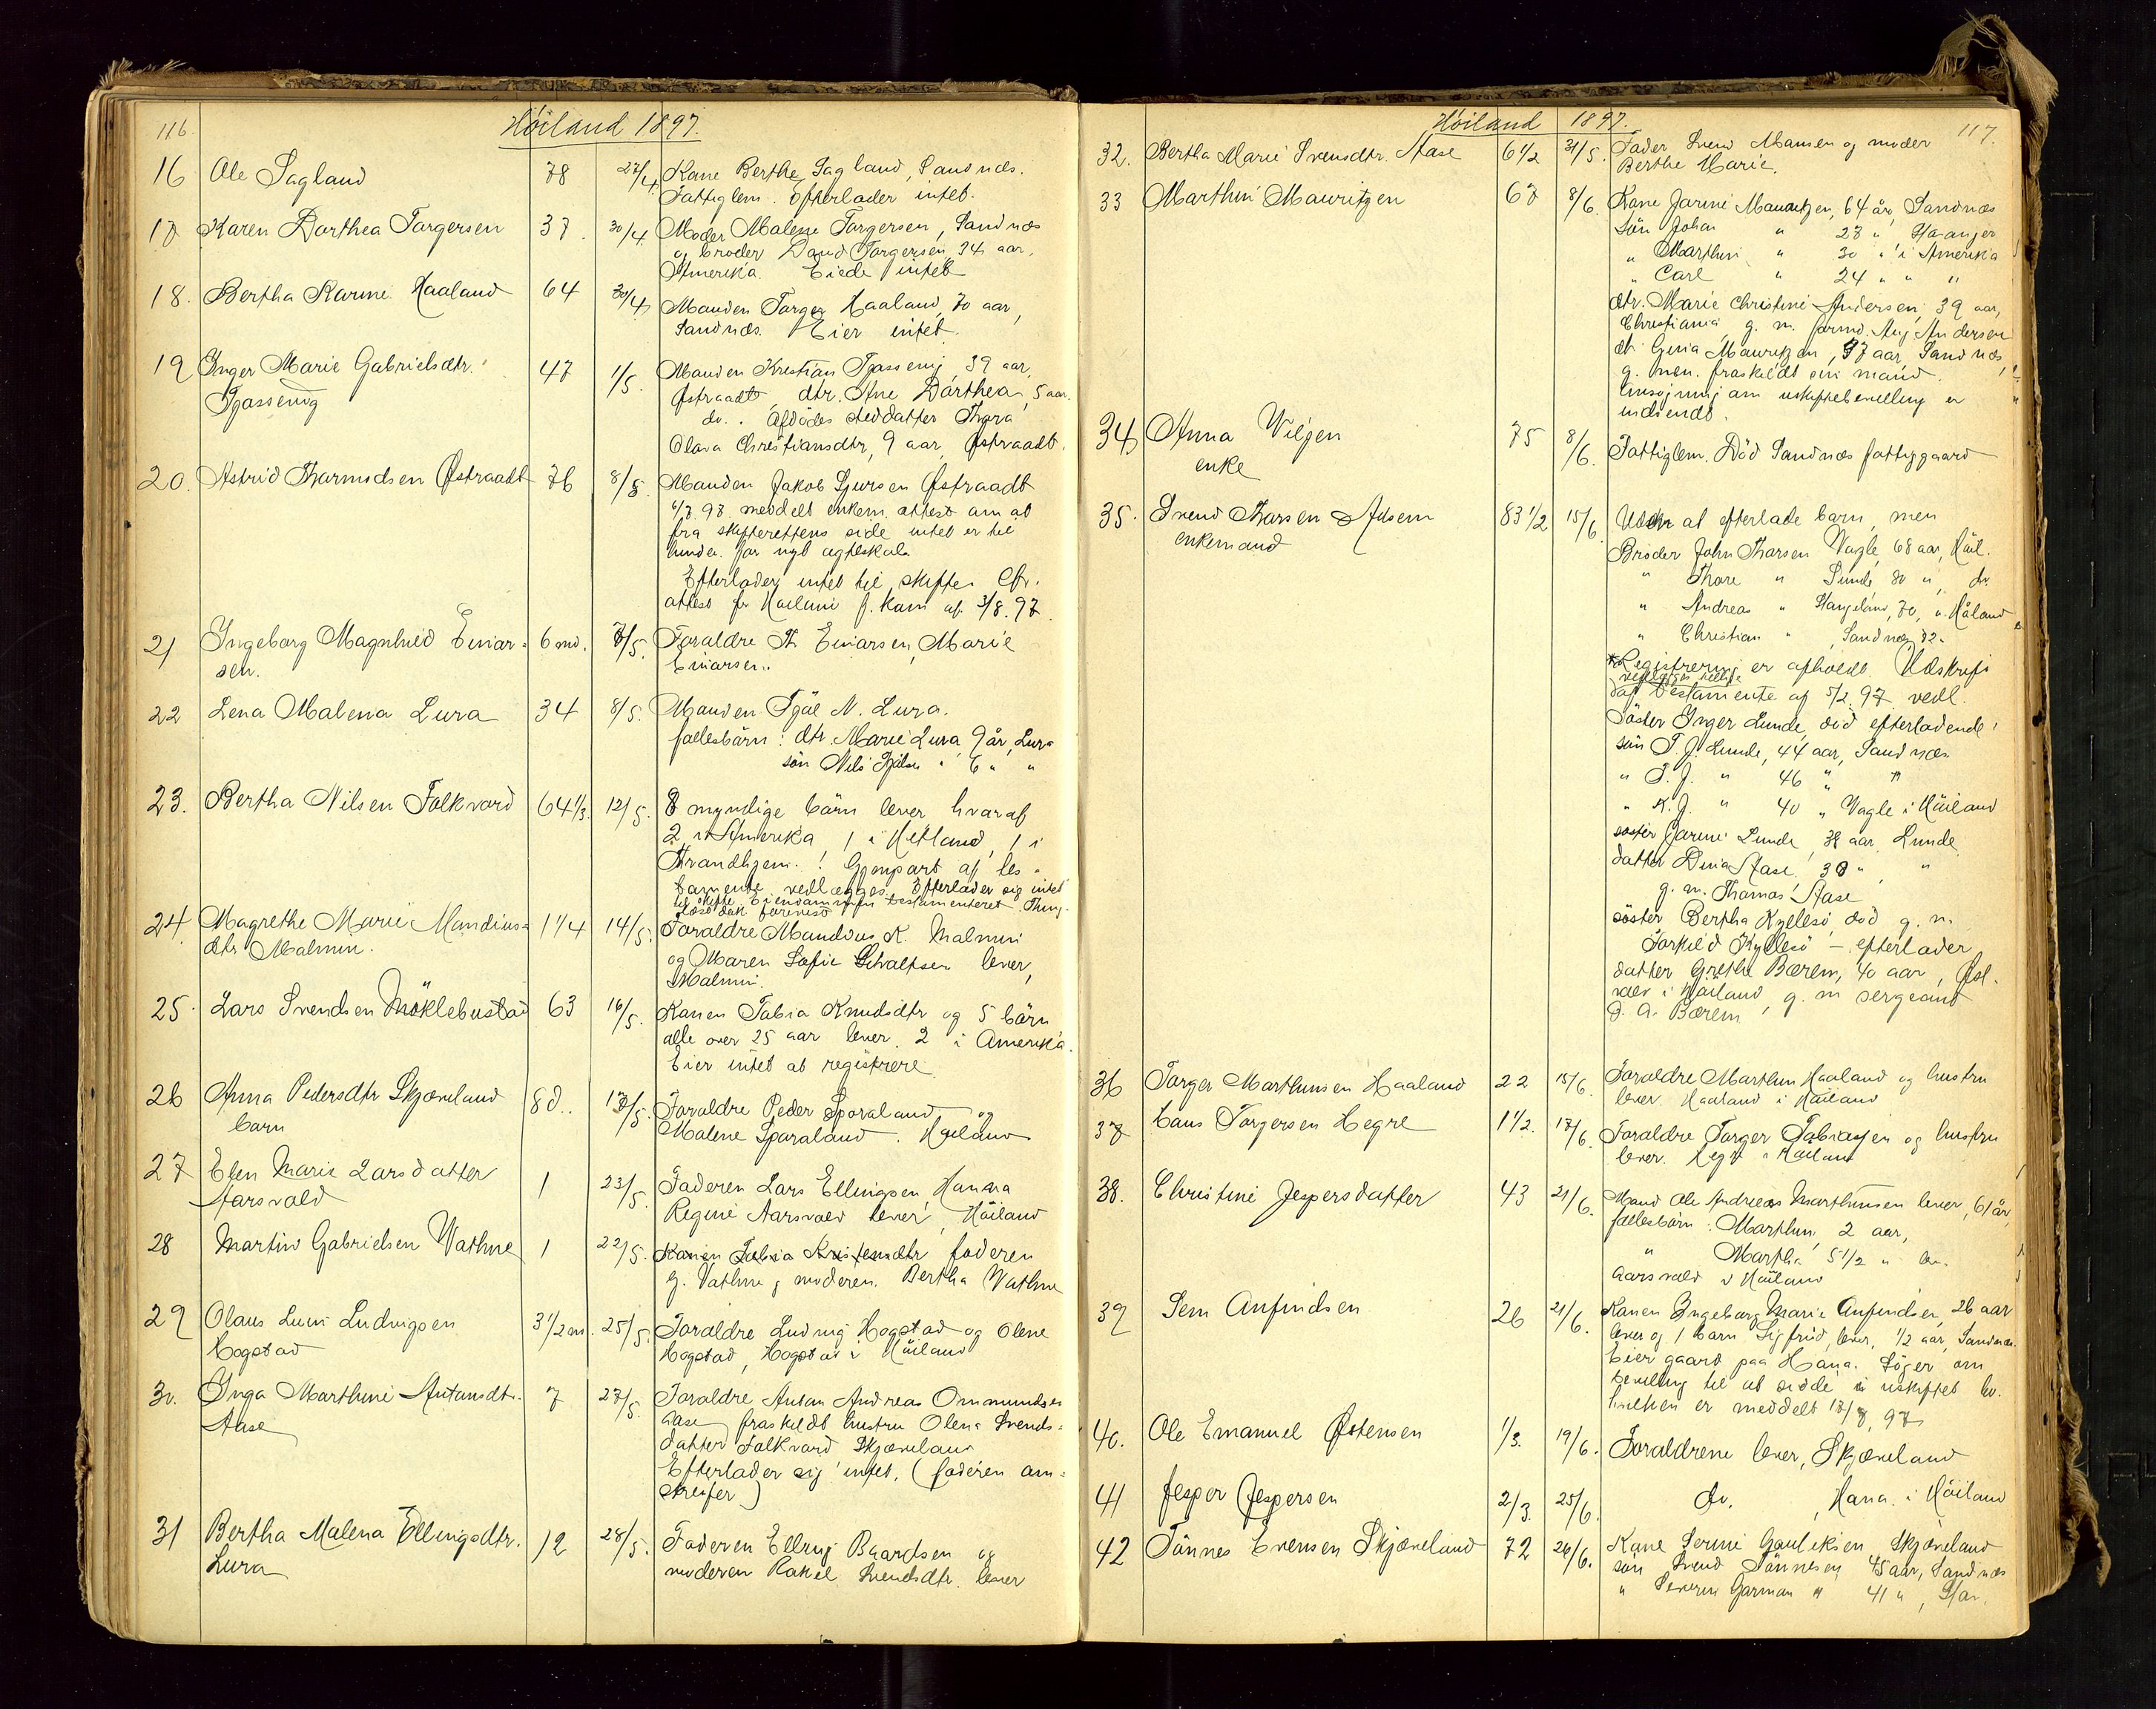 116.
Höiland 1897.
16 Ole Sagland 78 27/4 Kone Berthe Sagland, Sandnes.
Fattiglem. Efterlader intet.
17 Karen Dorthea Torgersen 37 30/4 Moder Malene Torgersen, Sandnæs
og broder David Torgersen 34 aar,
Amerika. Eiede intet
18. Bertha Karine Haaland 64 30/4 Manden Torger Haaland, 70 aar,
Sandnæs. Eier intet
19 Inger Marie Gabrielsdtr. 47 1/5. Manden Kristian 39 aar,
Østraadt, dtr. Ane Dorthea, 5 aar.
do. Afdødes steddatter Thora
Olava Christiansdtr, 9 aar, Østraadt.
20. Astrid Thormodsen Østraadt 76 8/5. Manden Jakob Sjursen Østraadt
6/7 97 meddelt enkem. attest om at
fra skifterettens side intet er til
hinder for nyt ægteskab.
Efterlader intet til skifte. Cfr.
attest fr Høilands f. kom af 3/8. 97.
21 Ingeborg Magnhild Einar- 6 md. 7/5. Forældre Einarsen, Marie
sen. Einarsen.
22 Lena Malena Lura 34 8/5. Manden Tjøl N. Lura.
fællesbörn: dtr. Marie Lura, 9 år, Lura
sön Nils " 6 " "
23. Bertha Nilsen Folkvord 64 1/3. 12/5. 8 myndige börn lever hvoraf
2 i Amerika, 1 i Hetland, 1 i
Trondhjem. ! Gjenpart af tes-
tamente vedlægges. Efterlader sig intet
til skifte. Eiendommen testamenteret. Thing-
læst dok forevist
24. Magrethe Marie Mandius- 1 1/4 14/5. Forældre Mandius K. Malmin
dtr Malmin. og Maren Sofie lever,
Malmin.
25. Lars Svendsen Möklebustad 63 16/5. Konen Tabia Knudsdtr og 5 börn
alle over 25 aar lever. 2 i Amerika.
Eier intet at registrere
26 Anna Pedersdtr Skjæveland 8 d. 17/5. Forældre Peder Sporaland og
barn Malene Sporaland. Høiland
27 Elen Marie Larsdatter 1 23/5. Faderen Lars Ellingsen, Hanna
Aarsvold Regine Aarsvold lever, Höiland
28 Martin Gabrielsen Vathne 1 22/5. Konen Tabia faderen
G. Vathne, moderen Bertha Vathne
29 Olaus Ludvigsen 3 1/2 m. 25/5. Forældre Ludvig Hogstad og Olene
Hogstad Hogstad, Hogstad i Höiland
30. Inga Marthine Antonsdtr. 7 27/5. Forældre Anton Andreas Ommundsen
Aase Aase, fraskildt hustru Olena Svends-
datter Folkvord Skjæveland
Efterlader sig intet. (faderen om-
streifer)
31 Bertha Malena Ellingsdtr. 12 28/5. Faderen Elling Baardsen og
Lura moderen Rakel Svendsdtr. lever
Höiland 1897. 117.
32. Bertha Marie Svensdtr. Aase 6 1/2 31/5. Fader Svend Monsen og moder
Berthe Marie.
33 Marthin Mauritzen 67 8/6. Kone Jorine Mauritzen, 64 år, Sandnæs
sön Johan " 28 "
" Marthin " 30 " i Amerika
" Carl " 24 " " "
dtr. Marie Christine Andersen, 39 aar,
Christiania, g. m. formd. Aug Andersen
dt. Gina Mauritzen, 37 aar, Sandnæs,
g. men fraskildt sin mand.
Ansøgning om uskiftebevilling er
indsendt.
34 Anna Viljen 75 8/6. Fattiglem. Död Sandnæs fattiggaard
enke
35. Svend Tharsen Adsem 83 1/2 15/6 Uden at efterlade barn, men
enkemand Broder John Tharsen Vagle, 68 aar, Höil.
" Thore " Lunde 80 ", do
" Andreas " 70, " Håland
" Christian " Sandnæs 82.
Registrering er afholdt. Udskrift
vedlægges
af testamente af 5/2. 97 vedl.
Söster Inger Lunde, död efterladende:
sön T. J. Lunde, 44 aar, Sandnæs
" S. J. " 46 " "
" K. J. " 40 " Vagle i Höiland
söster Jorine Lunde, 38 aar, Lunde
datter Dina Aase, 30 " "
g. m. Thomas Aase
söster Bertha Kyllesö död g. m.
Torkild Kyllesö - efterlader
datter Grethe Bærem, 40 aar,
i Høiland, g. m sergeant
G. A. Bærem
36 Torger Marthinsen Haaland 22 15/6 Forældre Marthin Haaland og hustru
lever. Haaland i Höiland
37 Hans Torgersen Hegre 1 1/2. 17/6. Forældre Torger Tobiassen og hustru
lever. Hegre i Höiland
38. Christine Jespersdatter 43 21/6. Mand Ole Andreas Marthinsen lever, 61 år
fællesbörn: Marthin, 2 aar,
" Martha 5 1/2 " lev.
Aarsvold i Höiland
39 Sem Anfindsen 26 21/6. Konen Ingeborg Marie Anfindsen, 26 aar
lever og 1 barn Sigfrid, lever, 1/2 aar, Sandnæs.
Eier gaard paa Hana. Söger om
bevilling til at sidde i uskiftet bo.
hvilken er meddelt 13/7. 97
40. Ole Emanuel Østensen 1/3. 19/6. Forældrene lever, Skjæveland
41 Jesper Jespersen 2/3. 25/6. do. , Hana i Höiland
42 Tönnes Evensen Skjæveland 72 26/6. Kone Serine Skjæveland
sön Svend Tönnesen, 45 aar, Sandnæs
" Severin Garman " 41 ", Stav.